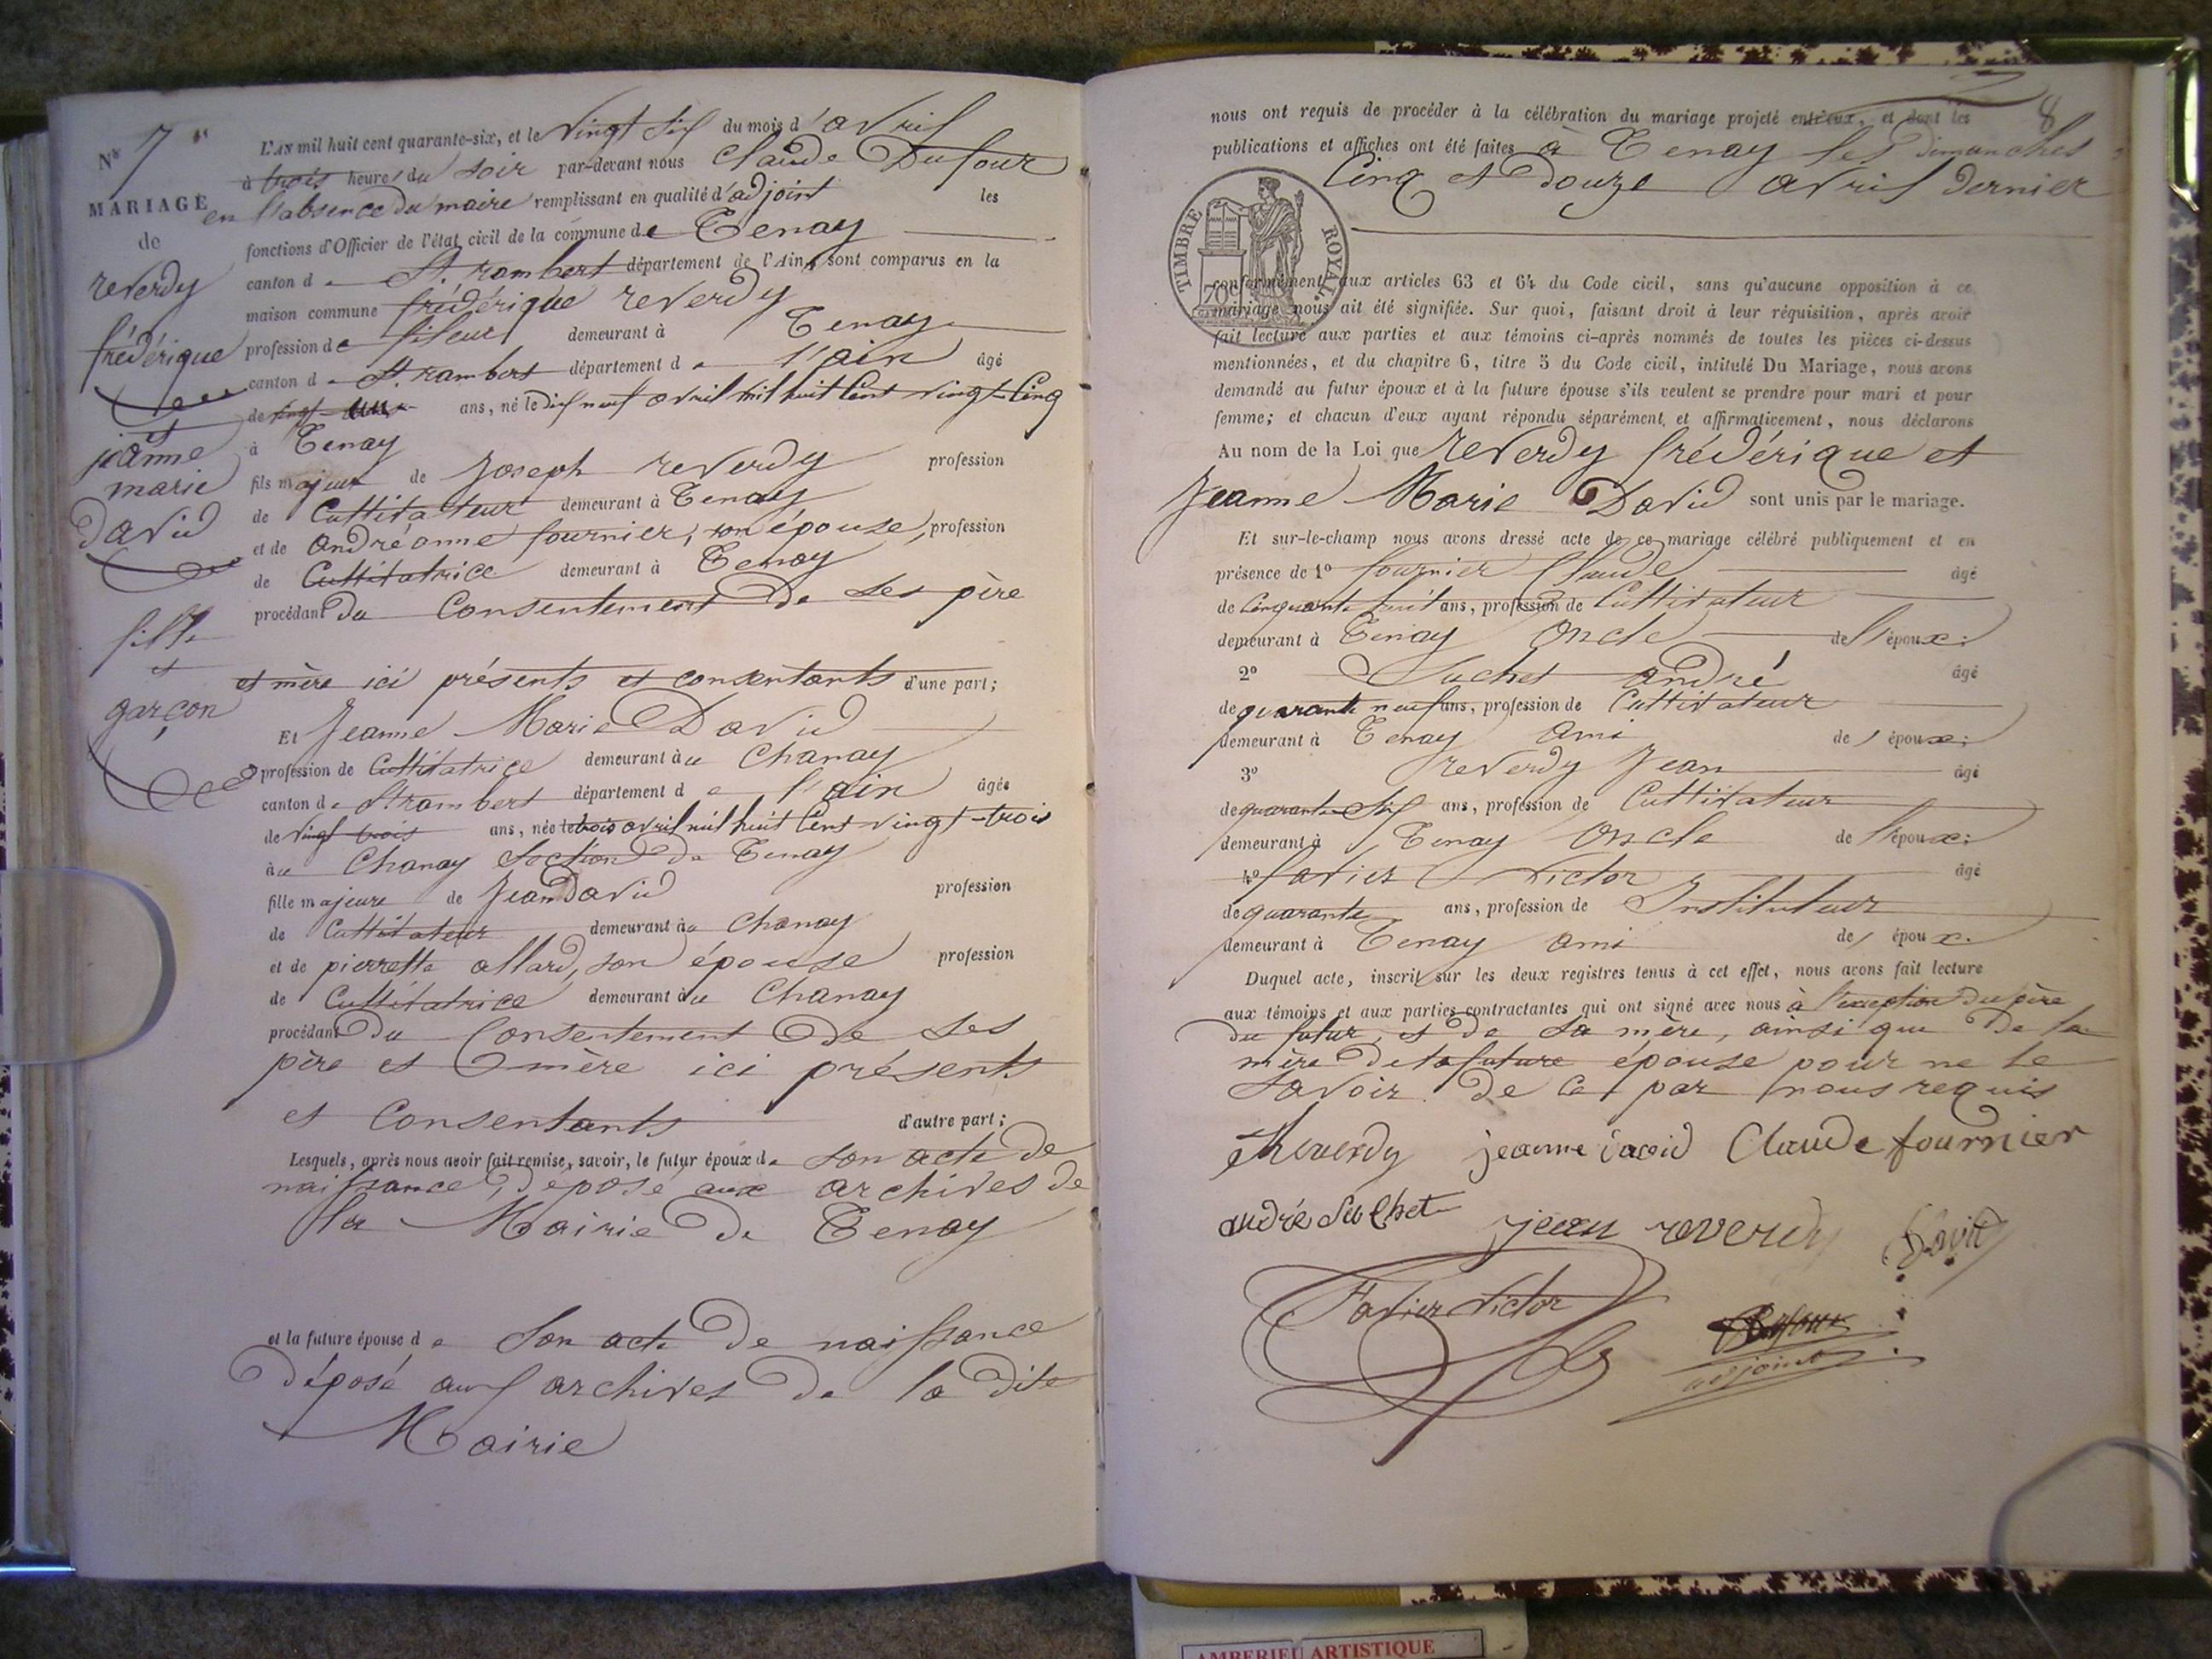 N° 7
MARIAGE
de
reverdy
frédérique
et
jeanne
marie
david
fille
et
garçon
L'AN mil huit cent quarante-six, et le vingt six du mois d'avril
à trois heures du soir par-devant nous Claude Dufour
en l'absence du maire remplissant en qualité d'adjoint les
fonctions d'Officier de l'état civil de la commune de Tenay
canton de St. rambert département de l'Ain, sont comparus en la
maison commune frédérique reverdy
profession de fileur demeurant à Tenay
canton de St. rambert département de l'ain âgé
de vingt-un ans, né le dix neuf avril mil huit Cent vingt-Cinq
à Tenay
fils majeur de Joseph reverdy profession
de Cultivateur demeurant à Tenay
et de andréanne fournier, son épouse, profession
de Cultivatrice demeurant à Tenay
procédant du Consentement de ses père
et mère ici présents et consentants d'une part;
Et Jeanne Marie David
profession de Cultivatrice demeurant au Chanay
canton de St rambert département de l'ain âgée
de vingt trois ans, née le trois avril mil huit Cent vingt-trois
au Chanay Section de Tenay
fille majeure de Jean David profession
de Cultivateur demeurant au Chanay
et de pierrette allard, son épouse profession
de Cultivatrice demeurant au Chanay
procédant du Consentement de ses
père et mère ici présents
et Consentants d'autre part;
Lesquels, après nous avoir fait remise, savoir, le futur époux de son acte de
naissance, déposé aux archives de
la Mairie de Tenay
et la future épouse de Son acte de naissance
déposé aux archives de la dite
Mairie
8
nous ont requis de procéder à la célébration du mariage projeté entr'eux, et dont les
publications et affiches ont été faites à Tenay les dimanches
Cinq et douze avril dernier
TIMBRE ROYAL.
70
conformément aux articles 63 et 64 du Code civil, sans qu'aucune opposition à ce
mariage nous ait été signifiée. Sur quoi, faisant droit à leur réquisition, après avoir
fait lecture aux parties et aux témoins ci-après nommés de toutes les pièces ci-dessus
mentionnées, et du chapitre 6, titre 5 du Code civil, intitulé Du Mariage, nous avons
demandé au futur époux et à la future épouse s'ils veulent se prendre pour mari et pour
femme; et chacun d'eux ayant répondu séparément et affirmativement, nous déclarons
Au nom de la Loi que reverdy frédérique et
Jeanne Marie David sont unis par le mariage.
Et sur-le-champ nous avons dressé acte de ce mariage célébré publiquement et en
présence de 1° fournier Claude âgé
de Cinquante huit ans, profession de Cultivateur
demeurant à Tenay Oncle de l'époux:
2° Suchet andré âgé
de quarante neuf ans, profession de Cultivateur
demeurant à Tenay ami des époux:
3° reverdy Jean âgé
de quarante Six ans, profession de Cultivateur
demeurant à Tenay Oncle de l'époux:
4° favier Victor âgé
de quarante ans, profession de Instituteur
demeurant à Tenay ami des époux.
Duquel acte, inscrit sur les deux registres tenus à cet effet, nous avons fait lecture
aux témoins et aux parties contractantes qui ont signé avec nous à l'exception du père
du futur, et de sa mère, ainsi que de la
mère de la future épouse pour ne le
savoir de ce par nous requis
freverdy jeanne david Claude fournier
andré Suchet jean reverdy David
Favier Victor Dufour
adjoint
AMBERIEU ARTISTIQUE